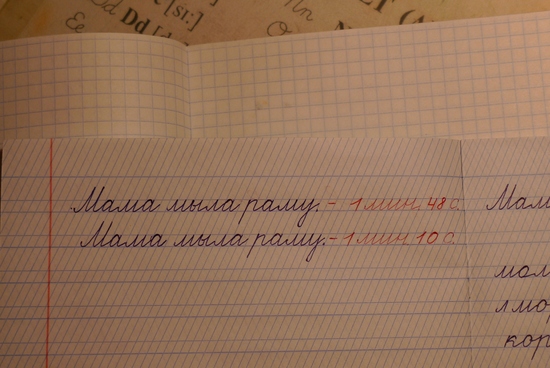 [si:]
Dd
Ee
Мама мыла раму. - 1 мин. 48 с.
Мама мыла раму. - 1 мин 10 с.
Мам
мол
лмо
кор